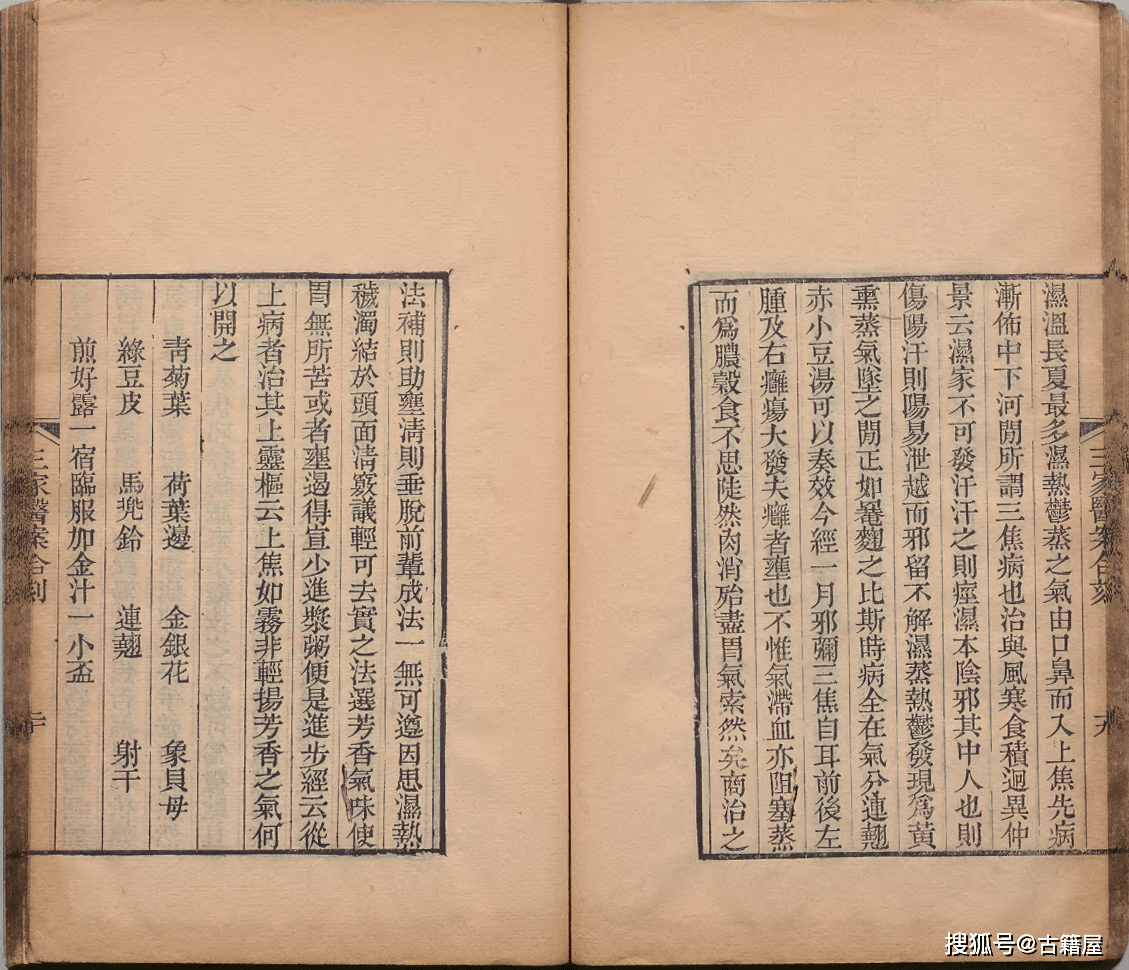 濕溫長夏最多濕熱鬱蒸之氣由口鼻而入上焦先病
漸佈中下河閒所謂三焦病也治與風寒食積迥異仲
景云濕家不可發汗汗之則痙濕本陰邪其中人也則
傷陽汗則陽易泄越而邪留不解濕蒸熱鬱發現爲黃
熏蒸氣墜之閒正如罨麯之比斯時病全在氣分連翹
赤小豆湯可以奏效今經一月邪彌三焦自耳前後左
腫及右癰瘍大發夫癰者壅也不惟氣滯血亦阻塞蒸
而爲膿穀食不思陡然肉消殆盡胃氣索然矣商治之
三家醫案合刻
法補則助壅淸則垂脫前輩成法一無可遵因思濕熱
穢濁結於頭面淸竅議輕可去實之法選芳香氣味使
胃無所苦或者壅遏得宣少進漿粥便是進步經云從
上病者治其上靈樞云上焦如霧非輕揚芳香之氣何
以開之
靑菊葉 荷葉邊 金銀花 象貝母
綠豆皮 馬兜鈴 連翹 射干
煎好露一宿臨服加金汁一小盃
三家醫案合刻
搜狐号@古籍屋